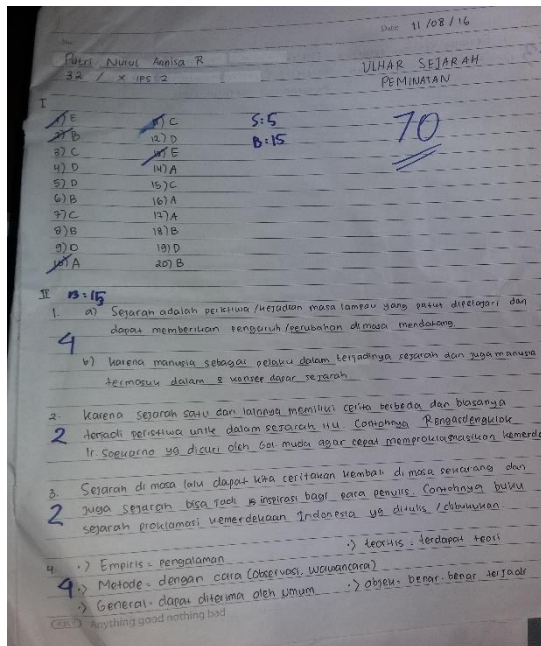 Date: 11/08/16
Putri Nurul Annisa R
32 / X IPS 2
ULHAR SEJARAH
PEMINATAN
70
I
1) E
2) B
3) C
4) D
5) D
6) B
7) C
8) B
9) D
10) A
11) C
12) D
13) E
14) A
15) C
16) A
17) A
18) B
19) D
20) B
S:5
B:15
II B:15
1. a) Sejarah adalah peristiwa /kejadian masa lampau yang patut dipelajari dan
dapat memberikan pengaruh /perubahan dimasa mendatang.
4
b) Karena manusia sebagai pelaku dalam terjadinya sejarah dan juga manusia
termasuk dalam konsep dasar sejarah
2. Karena sejarah satu dan lainnya memiliki cerita berbeda dan biasanya
2 terjadi peristiwa unik dalam sejarah itu. Contohnya Rengasdengklok
Ir. Soekarno yg diculi oleh Gol. muda agar cepat memproklamasikan kemerde
3. Sejarah di masa lalu dapat kita ceritakan kembali di masa sekarang dan
2 juga sejarah bisa jadi inspirasi bagi para penulis. Contohnya buku
sejarah proklamasi kemerdekaan Indonesia yg ditulis /dibukukan
4. •) Empiris = pengalaman •) teoritis = terdapat teori
4 •) Metode = dengan cara (observasi, wawancara)
•) General = dapat diterima oleh umum •) objek = benar-benar terjadi
KIKY Anything good nothing bad